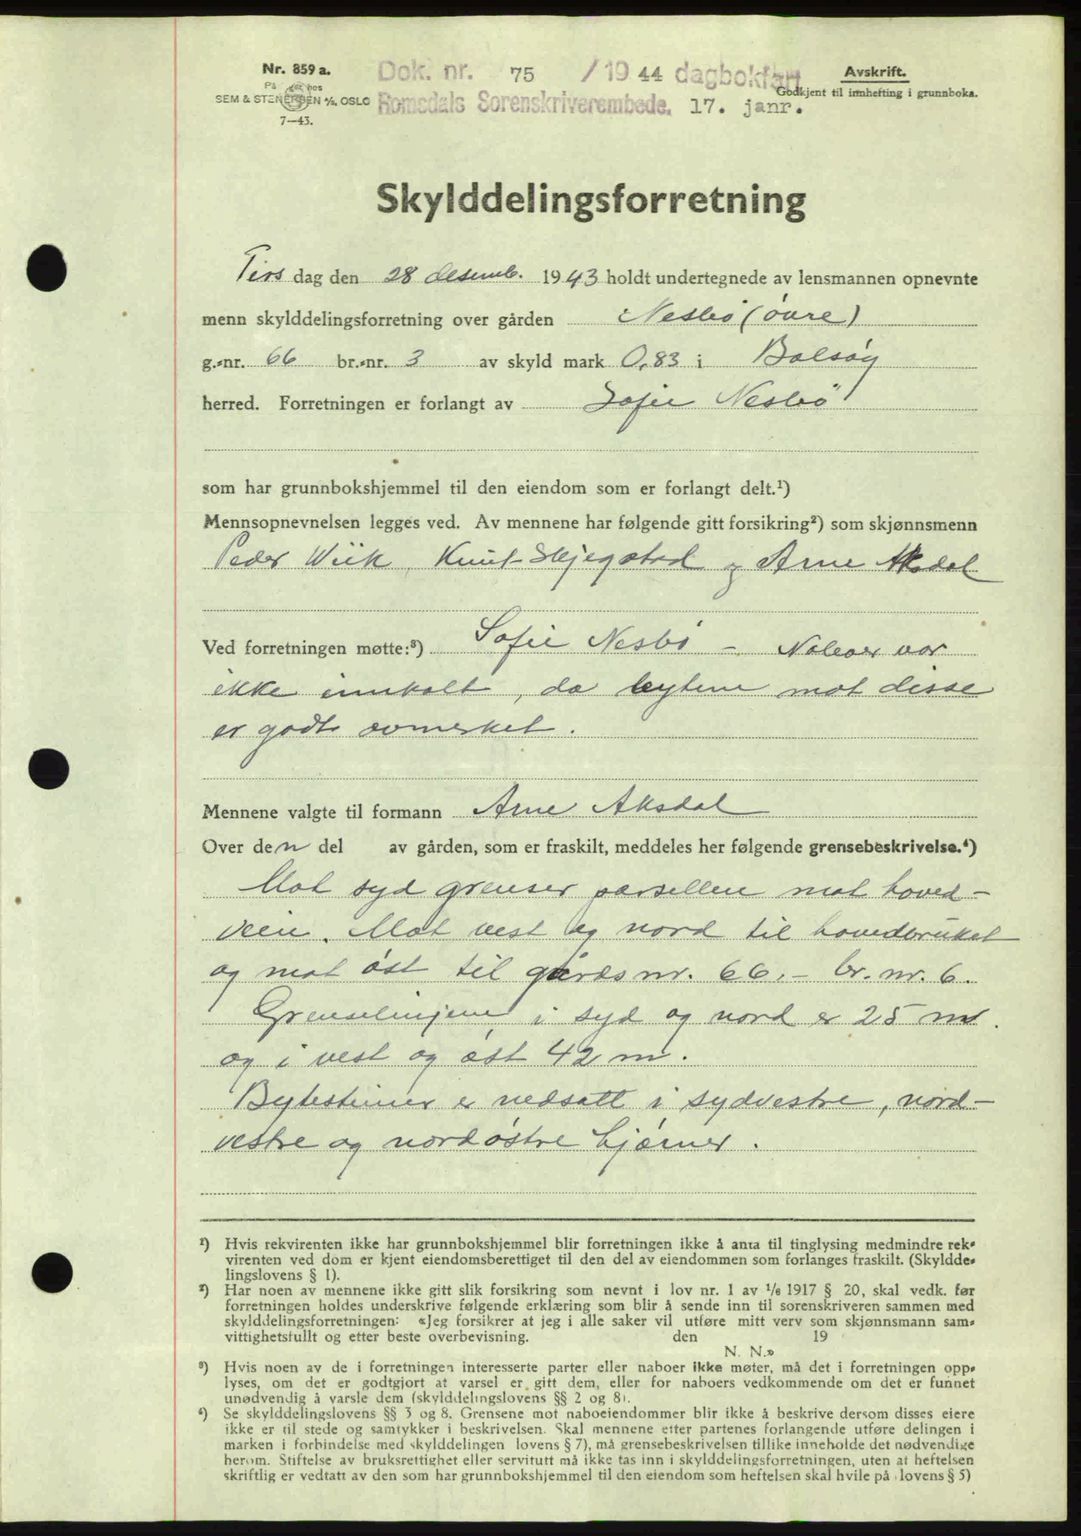 Nr. 859 a.
På lager hos
SEM & STENERSEN A/S, OSLO
7—43.
Dok. nr. 75 /19 44 dagbokført
Romsdals Sorenskriverembede. 17. janr.
Avskrift.
Godkjent til innhefting i grunnboka.
Skylddelingsforretning
Tirs dag den 28 desemb. 1943 holdt undertegnede av lensmannen opnevnte
menn skylddelingsforretning over gården Nesbö (övre)
g.-nr. 66 br.-nr. 3 av skyld mark 0,83 i Bolsöy
herred. Forretningen er forlangt av Sofie Nesbö
som har grunnbokshjemmel til den eiendom som er forlangt delt.¹)
Mennsopnevnelsen legges ved. Av mennene har følgende gitt forsikring²) som skjønnsmenn
Peder Wiik, Knut Skjegstad og Arne Aksdal
Ved forretningen møtte:³) Sofie Nesbö — Naboer var
ikke innkalt, da bytene mot disse
er godt avmerket.
Mennene valgte til formann Arne Aksdal
Over den del av gården, som er fraskilt, meddeles her følgende grensebeskrivelse.⁴)
Mot syd grenser parsellen mot hoved-
veien. Mot vest og nord til hovedbruket
og mot öst til gårdsnr. 66,- br. nr. 6.
Grenselinjene i syd og nord er 25 m.
og i vest og öst 42 m.
Bytesteiner er nedsatt i sydvestre, nord-
vestre og nordöstre hjörner.
¹) Hvis rekvirenten ikke har grunnbokshjemmel blir forretningen ikke å anta til tinglysing medmindre rek-
virenten ved dom er kjent eiendomsberettiget til den del av eiendommen som forlanges fraskilt. (Skyldde-
lingslovens § 1).
²) Har noen av mennene ikke gitt slik forsikring som nevnt i lov nr. 1 av 1/6 1917 § 20, skal vedk. før
forretningen holdes underskrive følgende erklæring som blir å sende inn til sorenskriveren sammen med
skylddelingsforretningen: «Jeg forsikrer at jeg i alle saker vil utføre mitt verv som skjønnsmann sam-
vittighetsfullt og etter beste overbevisning. den 19
N. N.»
³) Hvis noen av de i forretningen interesserte parter eller naboer ikke møter, må det i forretningen opp-
lyses, om det er godtgjort at varsel er gitt dem, eller for naboers vedkommende om det er funnet
unødvendig å varsle dem (skylddelingslovens §§ 2 og 8).
⁴) Se skylddelingslovens §§ 3 og 8. Grensene mot naboeiendommer blir ikke å beskrive dersom disses eiere
ikke er til stede og samtykker i beskrivelsen. Skal mennene etter partenes forlangende utføre delingen i
marken i forbindelse med skylddelingen (lovens § 7), må grensebeskrivelsen tillike inneholde det nødvendige
herom. Stiftelse av bruksrettighet eller servitutt må ikke tas inn i skylddelingsforretningen, uten at heftelsen
skriftlig er vedtatt av den som har grunnbokshjemmel til den eiendom som heftelsen skal hvile på (lovens § 5)